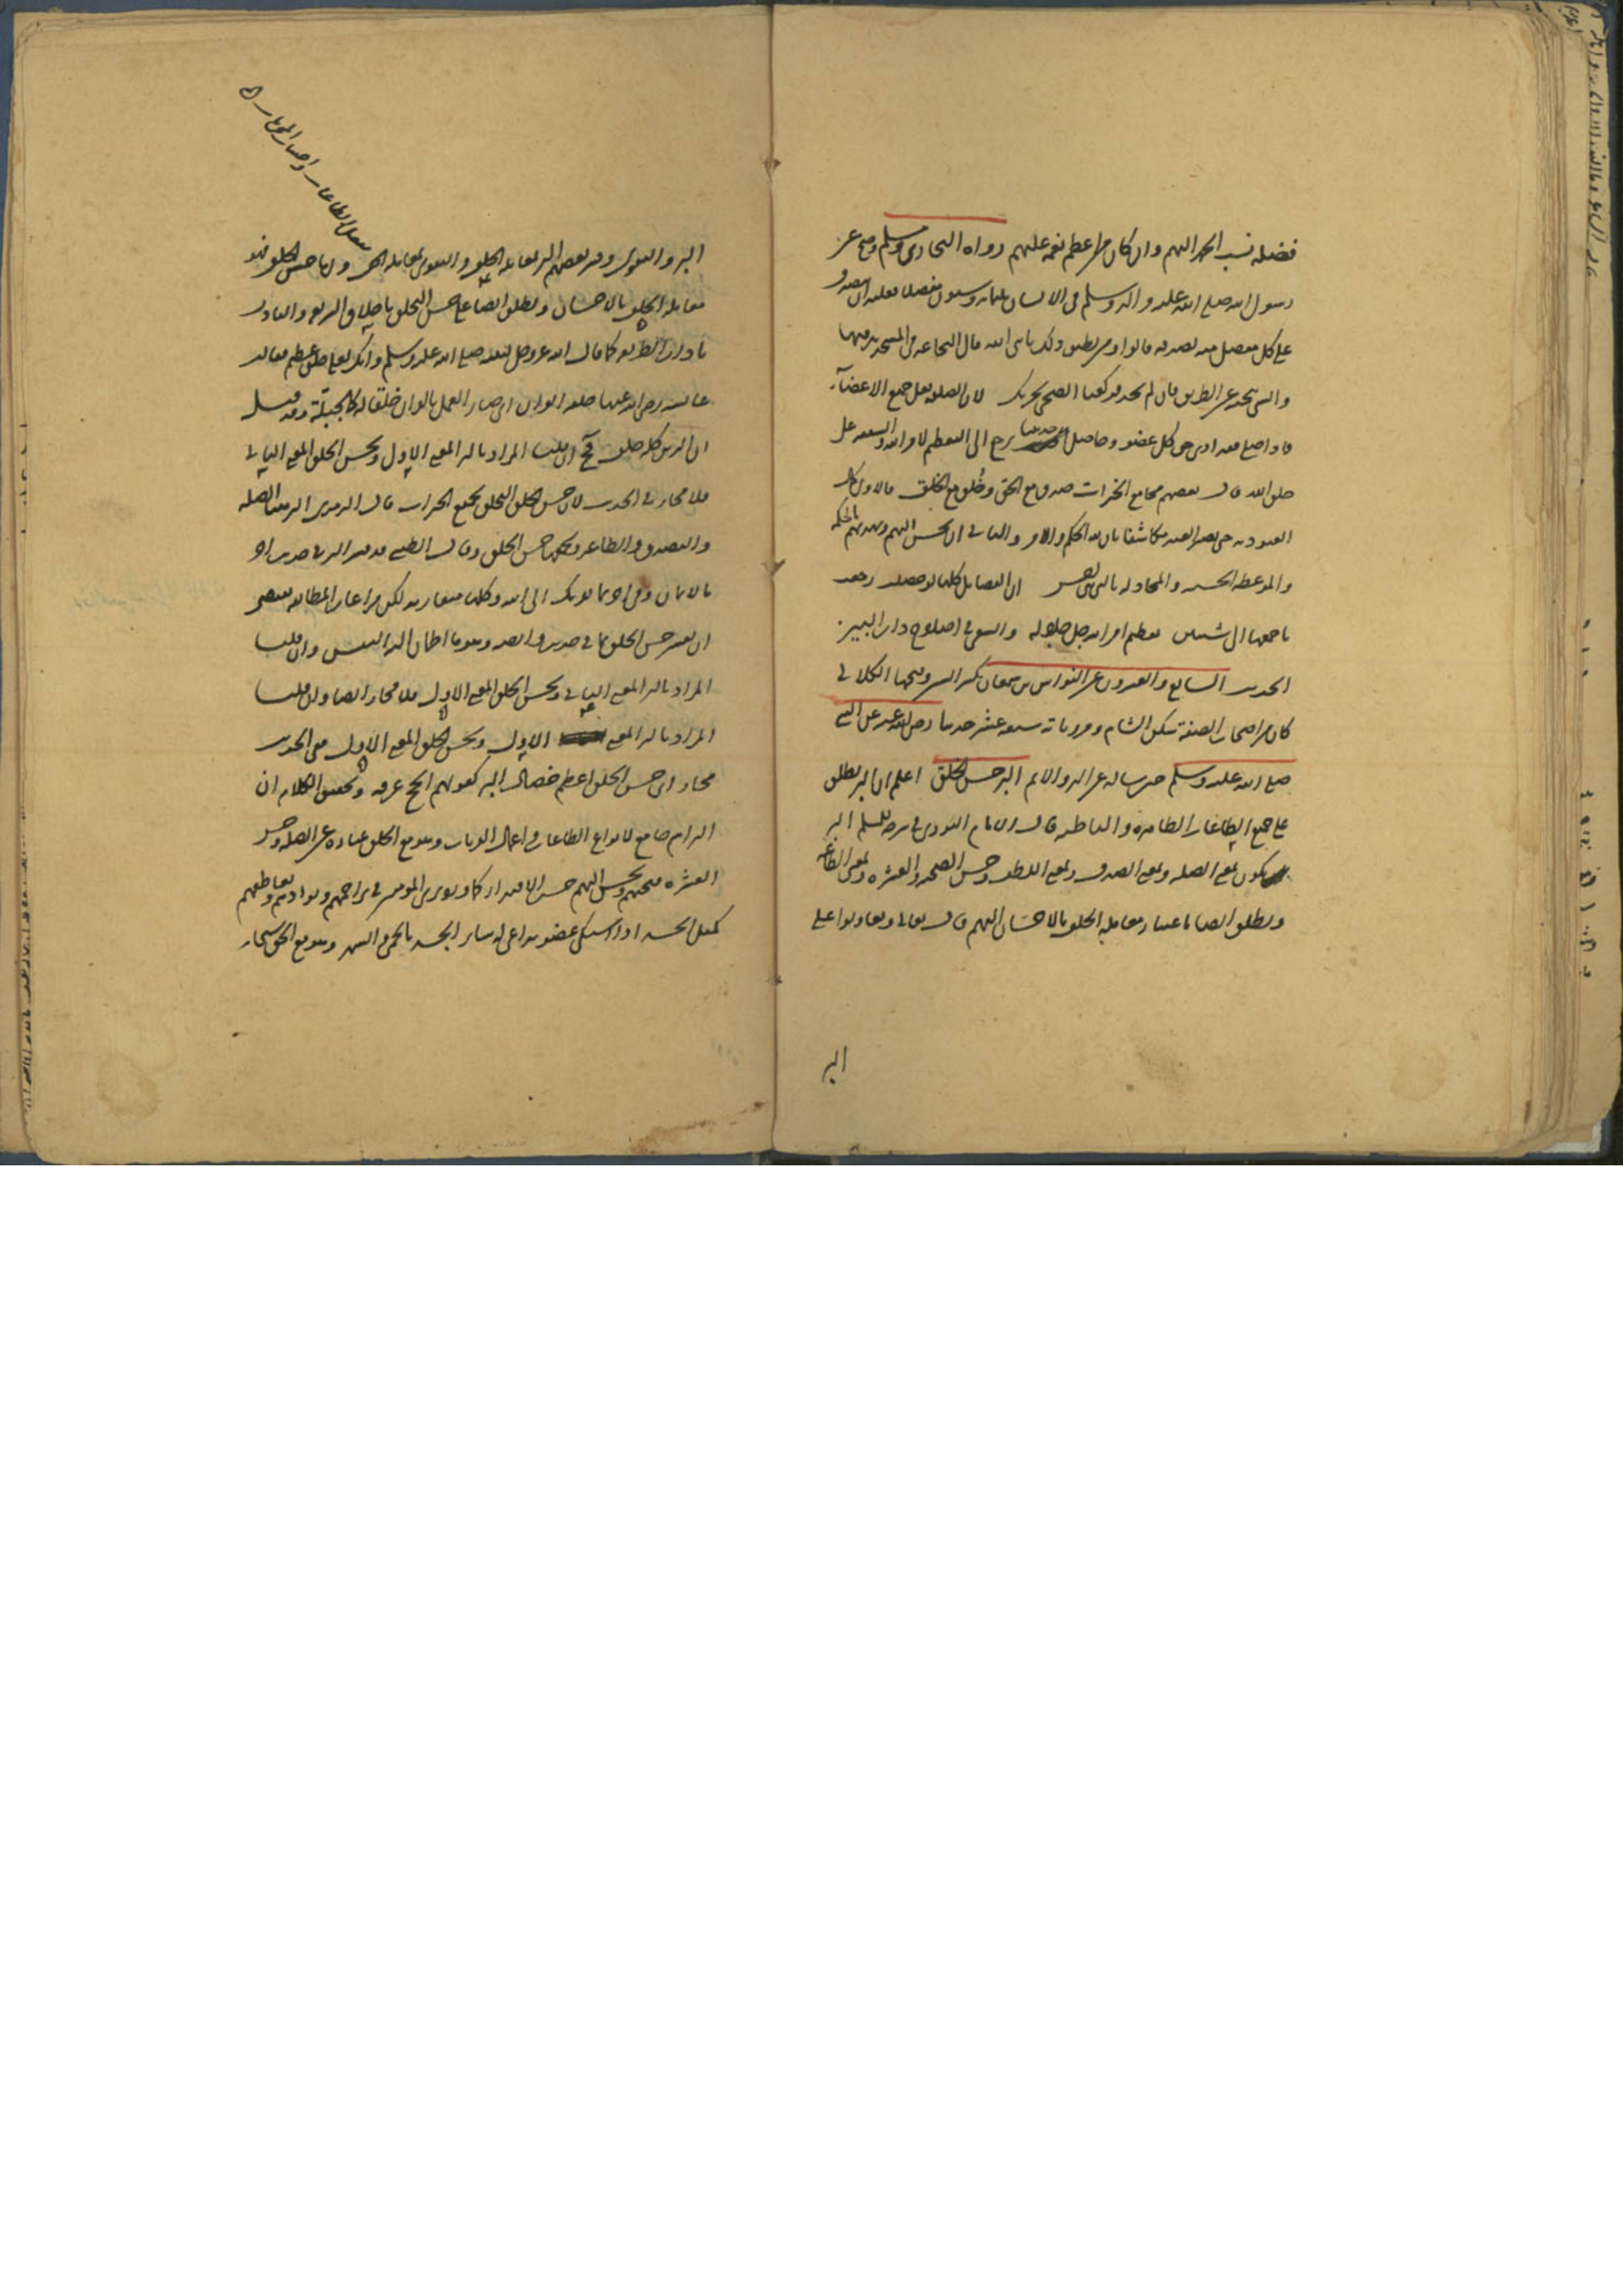 فضله نسب الحمد اليهم وان كان من اعظم نعمه عليهم رواه البخاري ومسلم وصح عن
رسول الله صلى الله عليه واله وسلم في الانسان ثلثمائة وستون مفصلا فعليه ان يتصدق
على كل مفصل منه بصدقة قالوا ومن يطيق ذلك يا نبي الله قال النخاعة في المسجد يدفنها
والشي ينحيه عن الطريق فان لم تجد فركعتا الضحى تجزيك لان الصلوة بعمل جميع الاعضاء
فاذا صلى فقد ادى حق كل عضو وحاصل يرجع الى التعظيم لامر الله والشفقة على
خلق الله قال بعضهم مجامع الخيرات صدق مع الحق وخُلق مع الخلق فالاول
العبودية حتى يصير العبد مكاشفا بان لله الحكم والامر والثاني ان يحسن اليهم ويهديهم بالحكمة
والموعظة الحسنة والمجادلة بالتي هي احسن ان الفضايل كلها لو حصلت رجعت
باجمعها الى شيئين تعظيم امر الله جل جلاله والسعي في اصلاح ذات البين
الحديث السابع والعشرون عن النواس بن سمعان بكسر السين وفتحها الكلابي
كان من اصحاب الصفة سكن الشام ومروياته سبعة عشر حديثا رضي الله عنه عن النبي
صلى الله عليه وسلم حين ساله عن البر والاثم البر حسن الخلق اعلم ان البر يطلق
على جميع الطاعات الظاهرة والباطنة قال الامام النووي في شرحه لمسلم البر
يكون بمعنى الصلة وبمعنى الصدق وبمعنى اللطف وحسن الصحبة والعشرة وبمعنى الطاعة
ويطلق ايضا باعتبار معاملة الخلق بالاحسان اليهم قال تعالى وتعاونوا على
البر
البر والتقوى وفسر بعضهم البر بمعاملة الخلق والتقوى بمعاملة الحق واما حسن الخلق فهو
معاملة الخلق بالاحسان ويطلق ايضا على حسن التخلق باخلاق الشريعة والتادب
باداب الطريقة كما قال الله عز وجل لنبيه صلى الله عليه وسلم وانك لعلى خلق عظيم فقالت
عائشة رضي الله عنها خلقه القران اي صار العمل بالقران خلقا له كالجبلة وقد قيل
ان الدين كله خلق فح ان قلت المراد بالبر المعنى الاول وبحسن الخلق المعنى الثاني
فلا مجاز في الحديث لان حسن الخلق التخلق بجميع الخيرات قال الترمذي البر معنى الصلة
والتصدق والطاعة ويجمعها حسن الخلق وقال الطيبي قد فسر البر في حديث اخر
بالايمان وفي اخر بما يقربك الى الله وكلها متقاربة لكن مراعات المطابقة يقتضي
ان يفسر حسن الخلق بما في حديث وابصة وهو ما اطمأن اليه النفس وان قلت
المراد بالبر المعنى الثاني وبحسن الخلق المعنى الاول فلا مجاز ايضا وان قلت
المراد بالبر المعنى الاول وبحسن الخلق المعنى الاول ففي الحديث
مجاز اي حسن الخلق اعظم خصال البر كقولهم الحج عرفة وتحقيق الكلام ان
البر اسم جامع لانواع الطاعات واعمال القربات وهو مع الخلق عبارة عن الصلة وحسن
العشرة فيحبهم ويحسن اليهم حسب الاقتدار كما ورد ترى المؤمنين في تراحمهم وتوادهم وتعاطفهم
كمثل الجسد اذا اشتكى عضو تداعى له ساير الجسد بالحمى والسهر وهو مع الحق سبحانه
بفعل الطاعات واجتناب